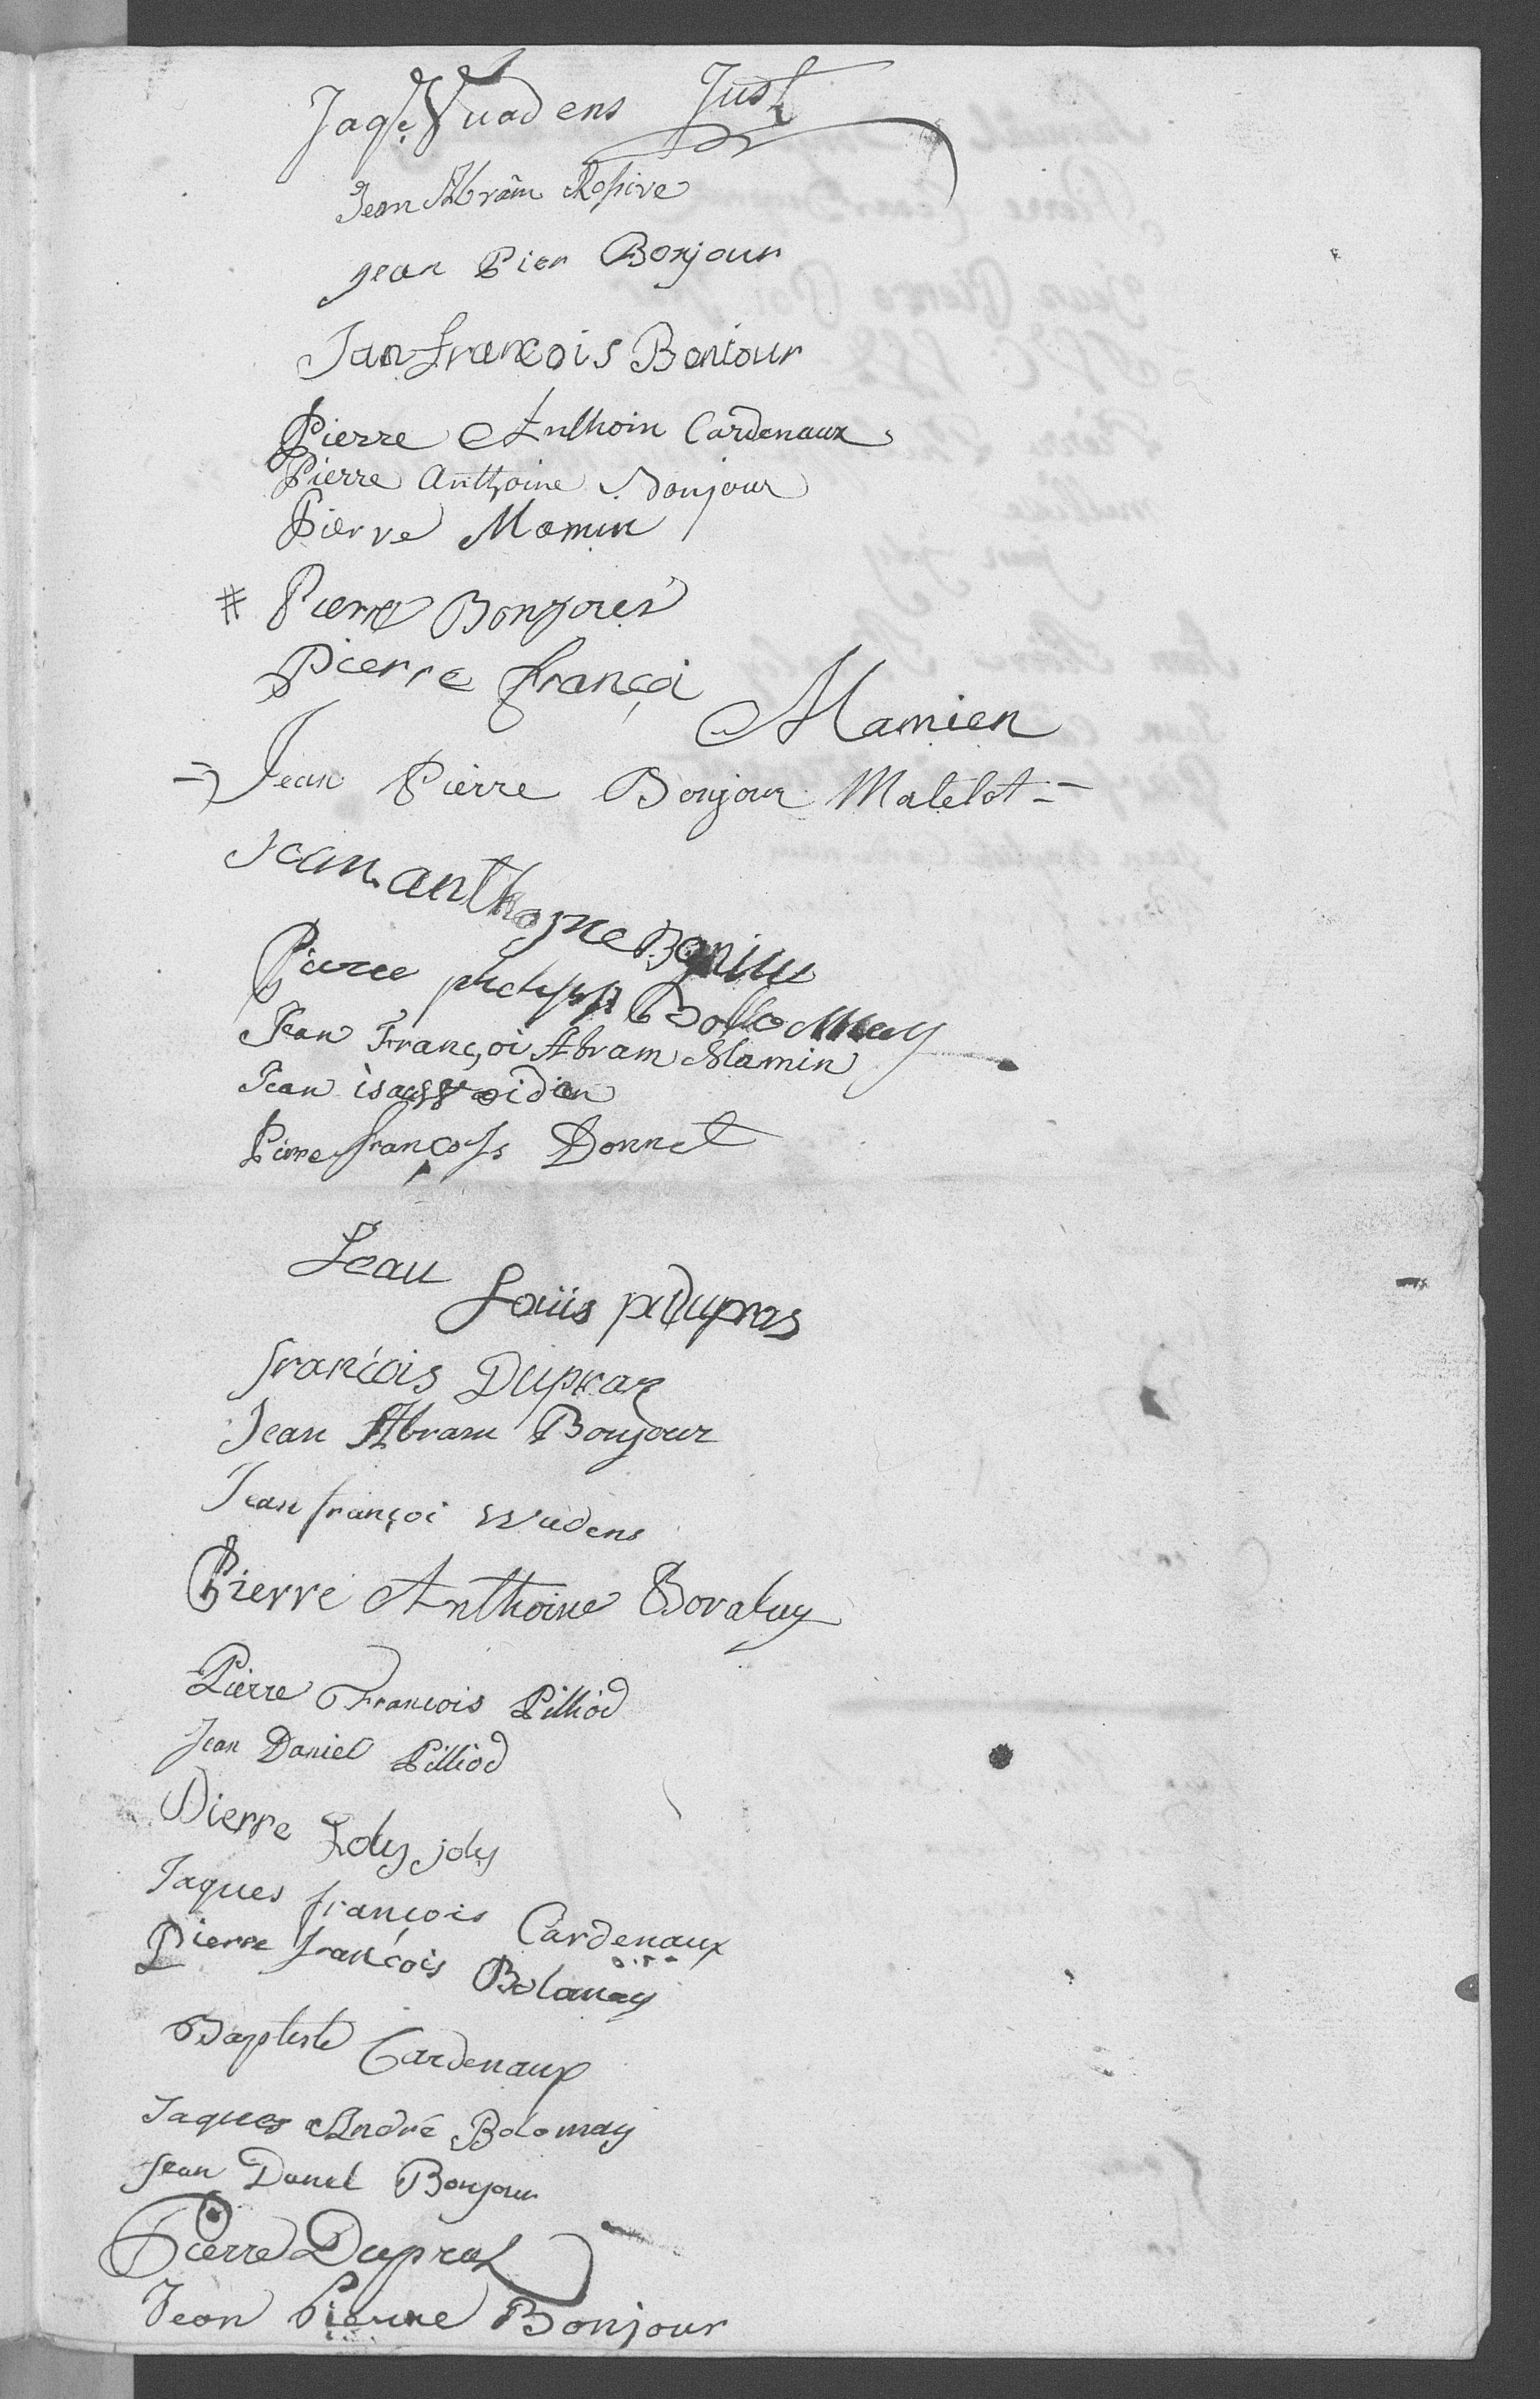 Jaqe Vuadens Just
Jean Abram Rossire
jean Pier Bonjour
Jan francois Boniour
Pierre Anthoin Cardenaux
Pierre Anthoine Bonjour
Pierre Momin
# Pierre Bonjour
Pierre françoi
Mamien
Jean Pierre Bonjour Matelot
Jean anthoyne
Pierre Bollomey
Jean Françoi Abram Mamin
Jean isac
Pierre françois Donnet
Jean
Louis Dupras
francois Dupraz
Jean Abram Bonjour
Jean françoi Wudens
Pierre Anthoine Bovaluy
Pierre Francois Pilliod
Jean Daniel Pilliod
Pierre Joly joly
Jaques françois Cardenaux
Pierre francois Bolamay
Baptiste Cardenaux
Jaques André Bolomay
Jean Danel Bonjour
Pierre Dupraz
Jean Pierre Bonjour